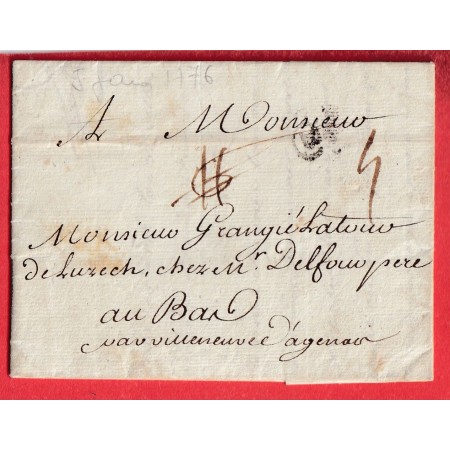 5 janv 1776
A Monsieur
Monsieur Grangié Latour
de Luzech, chez Mr. Delfour pere
au Bas
par villeneuve d'agenois